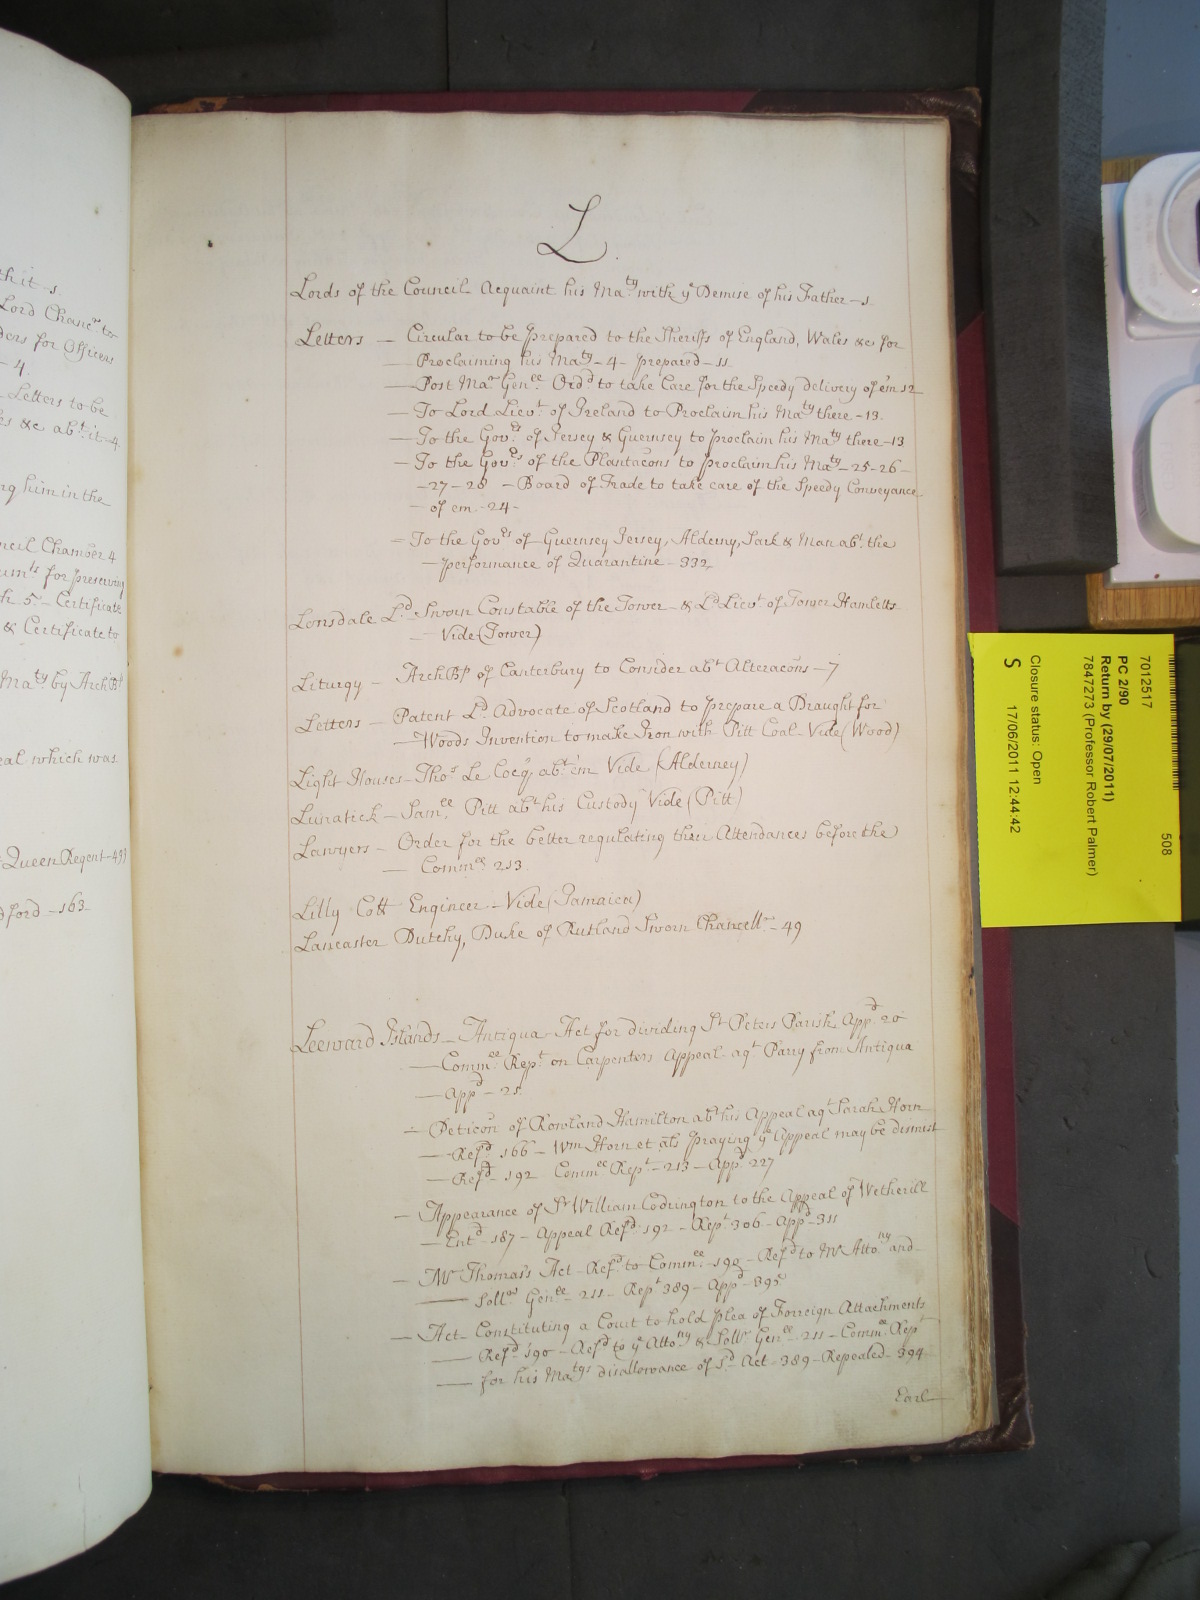 th it - 1
Lord Chanc.r to
ders for Officers
- 4.
Letters to be
es &c ab.t it - 4
ng him in the
ncil Chamber 4
um.ts for preserving
h 5 - Certificate
& Certificate to
Ma.ty by ArchBp
eal which was
Queen Regent - 493
dford - 163
L
Lords of the Council Acquaint his Ma.ty with y.e Demise of his Father - 1
Letters - Circular to be prepared to the Sheriffs of England, Wales &c for
Proclaiming his Ma.ty - 4 - prepared - 11
- Post Ma.r Gen.ll Ord.d to take Care for the Speedy delivery of em 12
- To Lord Lieu.t of Ireland to Proclaim his Ma.ty there - 13
- To the Gov.rs of Jersey & Guernsey to proclaim his Ma.ty there - 13
- To the Gov.rs of the Plantacons to proclaim his Ma.ty - 25 - 26 -
- 27 - 28 - Board of Trade to take care of the Speedy Conveyance
- of em - 24 -
- To the Gov.rs of Guernsey Jersey, Alderny, Sark & Man ab.t the
- performance of Quarantine - 332
Lonsdale L.d Sworn Constable of the Tower - & L.d Lieu.t of Tower Hamletts
- Vide (Tower)
Liturgy - ArchBp of Canterbury to Consider ab.t Alteracons - 7
Letters - Patent L.d Advocate of Scotland to prepare a Draught for
- Woods Invention to make Iron with Pitt Coal - Vide (Wood)
Light Houses - Tho.s Le Cocq ab.t em Vide (Alderney)
Lunatick - Sam.ll Pitt ab.t his Custody Vide (Pitt)
Lawyers - Order for the better regulating their Attendances before the
- Comm.ee 213
Lilly Coll Engineer - Vide (Jamaica)
Lancaster Dutchy, Duke of Rutland Sworn Chancell.r - 49
Leeward Islands - Antigua - Act for dividing S.t Peters Parish App.d 20
- Comm.ee Rep.t on Carpenters Appeal ag.t Parry from Antigua
- App.d - 21
- Peticon of Rowland Hamilton ab.t his Appeal ag.t Sarah Horn
- Ref.d 166 - Wm Horn et als praying y.e Appeal may be dismist
- Ref.d 192 Comm.ee Rep.t - 213 - App.d 227
- Appearance of S.r William Codrington to the Appeal of Wetherill
- Ent.d - 187 - Appeal Ref.d 192 - Rep.t 306 - App.d - 311
- M.r Thomas's Act - Ref.d to Comm.ee - 190 - Ref.d to M.r Atto.ny and
- Soll.r Gen.ll - 211 - Rep.t 389 - App.d - 395
- Act Constituting a Court to hold plea of Forreign Attachments
- Ref.d 190 - Ref.d to y.e Atto.ny & Soll.r Gen.ll 211 - Comm.ee Rep.t
- for his Ma.tys disallowance of s.d Act - 389 - Repealed - 394
Earl
7012517 508
PC 2/90
Return by (29/07/2011)
7847273 (Professor Robert Palmer)
Closure status: Open
S 17/06/2011 12:44:42